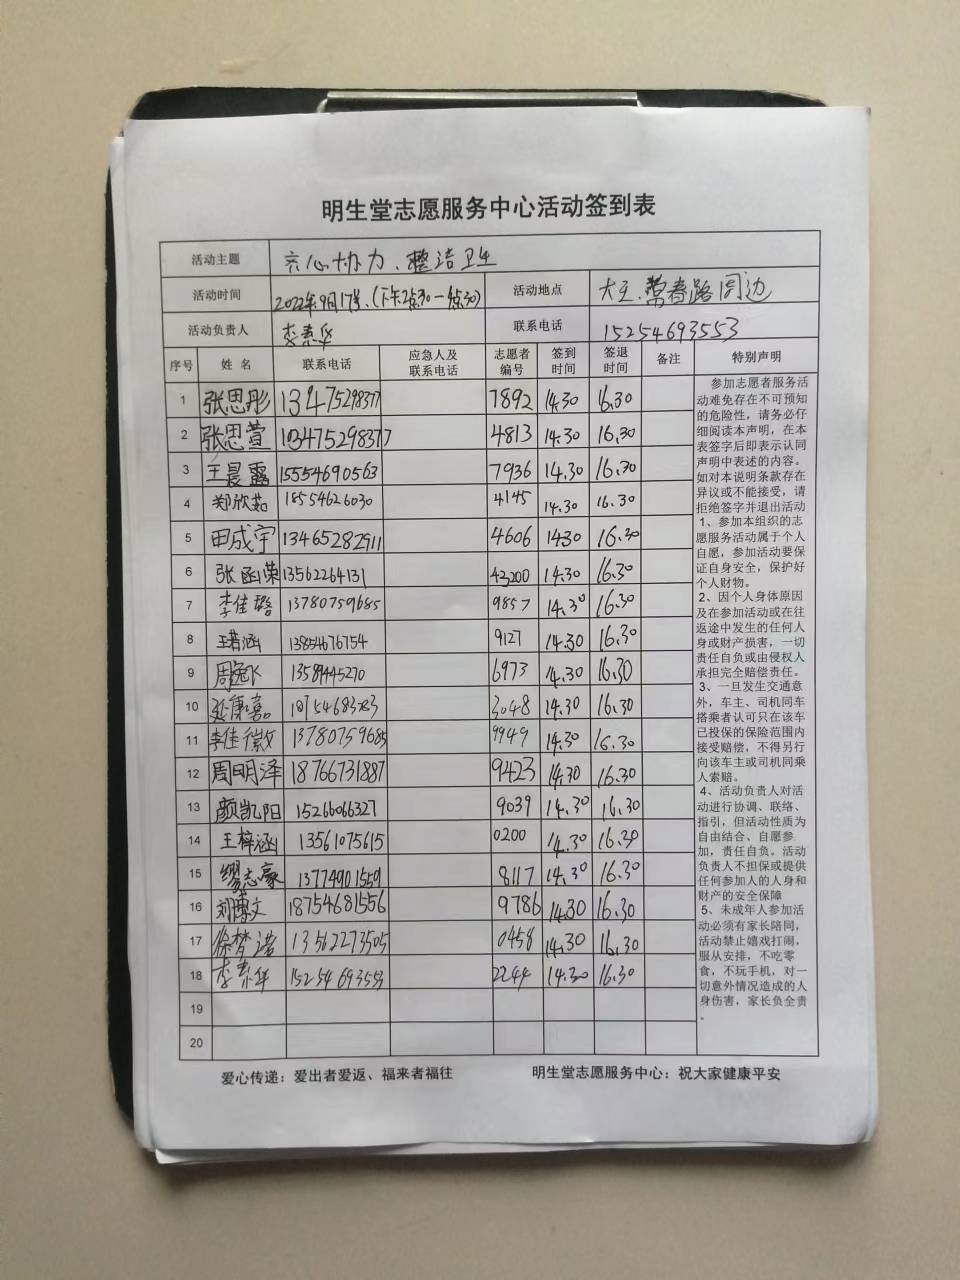 明生堂志愿服务中心活动签到表
活动主题 齐心协力、整洁卫生
活动时间 2022年9月17号、(下午2点30一4点30) 活动地点 大王、莺春路周边
活动负责人 李素华 联系电话 15254693553
序号 姓名 联系电话 应急人及联系电话 志愿者编号 签到时间 签退时间 备注 特别声明
1 张思彤 13475298377 7892 14.30 16.30
2 张思萱 4813 14.30 16.30
3 王晨露 15554690563 7936 14.30 16.30
4 郑欣茹 18554626030 4145 14.30 16.30
5 田成宇 13465282911 4606 1430 16.30
6 张函荣 13562264131 43200 14.30 16.30
7 李佳璐 13780759685 9857 14.30 16.30
8 王若涵 13854676754 9127 14.30 16.30
9 周逸飞 6973 14.30 16.30
10 3048 14.30 16.30
11 李佳徽 13780759685 9949 14.30 16.30
12 周明泽 18766731887 9423 14.30 16.30
13 颜凯阳 15266066327 9039 14.30 16.30
14 王梓涵 13561075615 0200 14.30 16.30
15 缪志豪 13774901559 8117 14.30 16.30
16 刘博文 18754681556 9786 14.30 16.30
17 徐梦诺 13562273505 0458 14.30 16.30
18 李素华 15254693553 2244 14.30 16.30
19
20
参加志愿者服务活
动难免存在不可预知
的危险性，请务必仔
细阅读本声明，在本
表签字后即表示认同
声明中表述的内容。
如对本说明条款存在
异议或不能接受，请
拒绝签字并退出活动
1、参加本组织的志
愿服务活动属于个人
自愿，参加活动要保
证自身安全，保护好
个人财物。
2、因个人身体原因
及在参加活动或在往
返途中发生的任何人
身或财产损害，一切
责任自负或由侵权人
承担完全赔偿责任。
3、一旦发生交通意
外，车主、司机同车
搭乘者认可只在该车
已投保的保险范围内
接受赔偿，不得另行
向该车主或司机同乘
人索赔。
4、活动负责人对活
动进行协调、联络、
指引，但活动性质为
自由结合、自愿参
加，责任自负。活动
负责人不担保或提供
任何参加人的人身和
财产的安全保障
5、未成年人参加活
动必须有家长陪同，
活动禁止嬉戏打闹，
服从安排，不吃零
食，不玩手机，对一
切意外情况造成的人
身伤害，家长负全责
。
爱心传递：爱出者爱返、福来者福往 明生堂志愿服务中心：祝大家健康平安